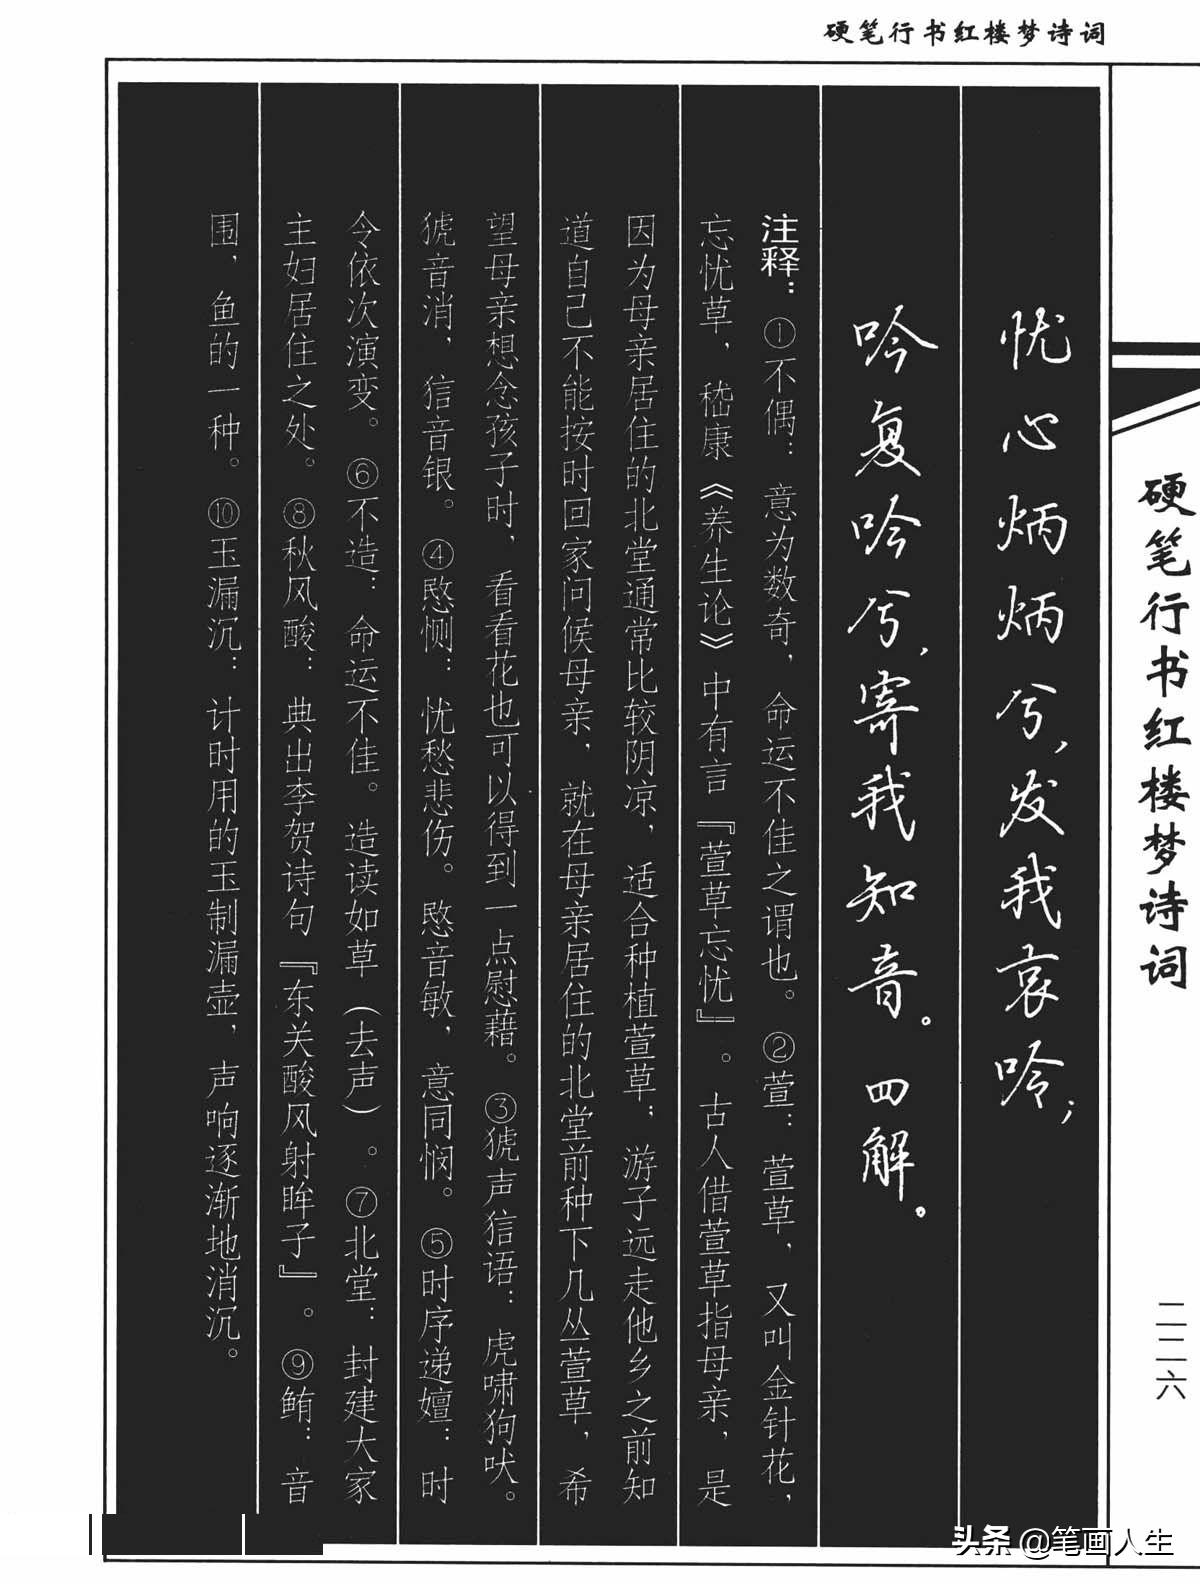 硬笔行书红楼梦诗词
硬笔行书红楼梦诗词
二二六
忧心炳炳兮，发我哀吟；
吟复吟兮，寄我知音。四解。
注释：①不偶：意为数奇，命运不佳之谓也。②萱：萱草，又叫金针花，
忘忧草，嵇康《养生论》中有言『萱草忘忧』。古人借萱草指母亲，是
因为母亲居住的北堂通常比较阴凉，适合种植萱草；游子远走他乡之前知
道自己不能按时回家问候母亲，就在母亲居住的北堂前种下几丛萱草，希
望母亲想念孩子时，看看花也可以得到一点慰藉。③猇声信语：虎啸狗吠。
猇音消，信音银。④慜恻：忧愁悲伤。慜音敏，意同悯。⑤时序递嬗：时
令依次演变。⑥不造：命运不佳。造读如草（去声）。⑦北堂：封建大家
主妇居住之处。⑧秋风酸：典出李贺诗句『东关酸风射眸子』。⑨鲔：音
围，鱼的一种。⑩玉漏沉：计时用的玉制漏壶，声响逐渐地消沉。
头条 @笔画人生